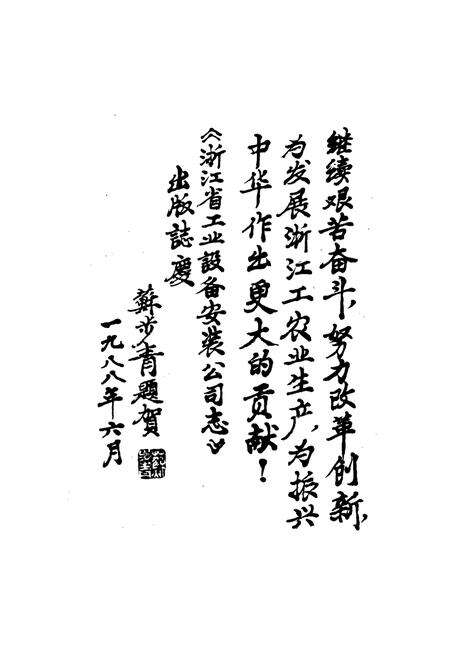 继续艰苦奋斗，努力改革创新，
为发展浙江工农业生产，为振兴
中华作出更大的贡献！
《浙江省工业設备安装公司志》
出版誌慶
蘇步青題賀
一九八八年六月